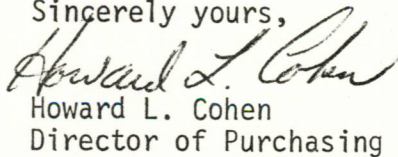 Sincerely yours,
Howard L. Cohen
Howard L. Cohen
Director of Purchasing